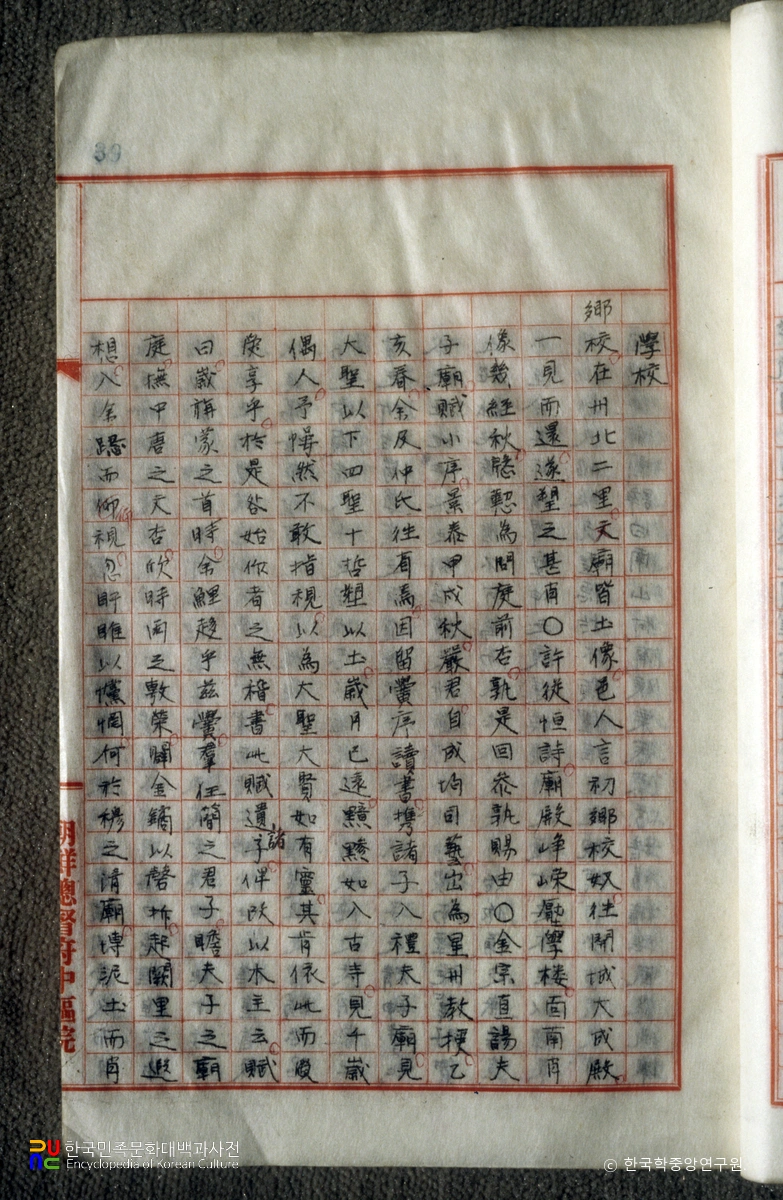 39
學校
鄕校在州北二里文廟皆土像邑人言初鄕校奴往開城大成殿
一見而還遂塑之甚肖○許從恒詩廟殿崢嶸壓學樓面南肖
像幾經秋慇懃為問庭前杏孰是回參孰賜由○金宗直謁夫
子廟賦小序景泰甲戌秋嚴君自成均司藝出為星州敎授乙
亥春余及仲氏往省焉因留黌序讀書携諸子入禮夫子廟見
大聖以下四聖十哲塑以土歲月已遠黯黲如入古寺見千歲
偶人予悼然不敢指視以為大聖大賢如有靈其肯依此而歆
享乎於是咎始作者之無稽書此賦遺諸子俾改以木主云賦
曰歲旃蒙之首時余鯉趨乎玆黌羣任簡之君子瞻夫子之廟
庭撫中唐之文杏欣時雨之敷榮闢金鏞以磬折起闕里之遐
想入余跽而仰視忽盱睢以戃惘何於穆之淸廟塼泥土而肖
朝鮮總督府中樞院
한국민족문화대백과사전
Encyclopedia of Korean Culture
© 한국학중앙연구원